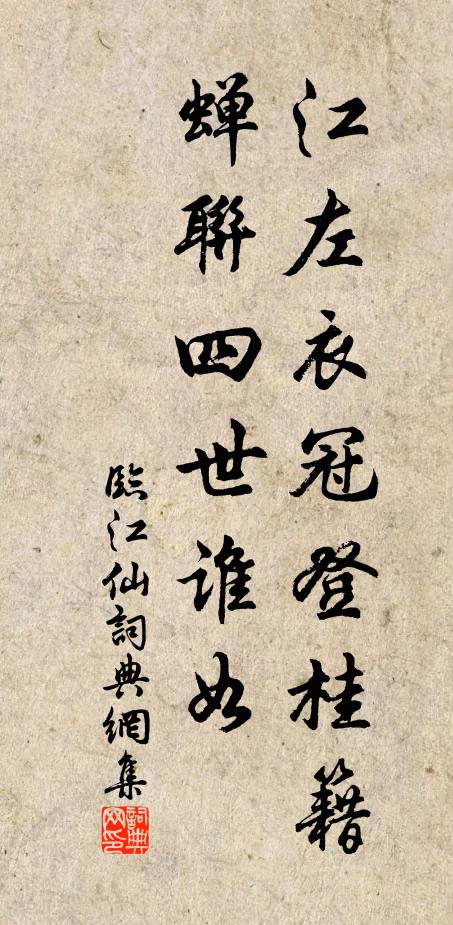 江左衣冠登桂籍
蝉聯四世誰如
臨江仙詞典網集
詞典網印